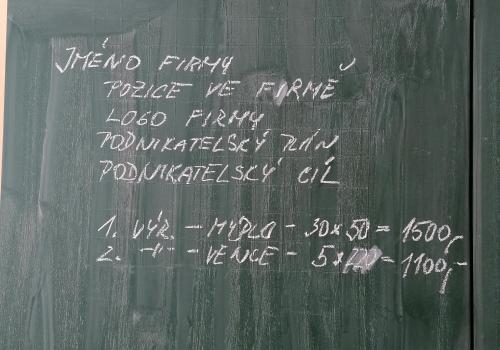 JMÉNO FIRMY
POZICE VE FIRMĚ
LOGO FIRMY
PODNIKATELSKÝ PLÁN
PODNIKATELSKÝ CÍL
1. VÝR. – MÝDLO – 30 x 50 = 1500,-
2. –"– – VĚNCE – 5 x = 1100,-